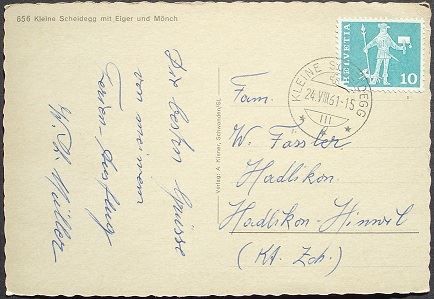 656 Kleine Scheidegg mit Eiger und Mönch
Die besten Grüsse
von meinem
Ferien-Ausflug
W. K. Müller
Verlag: A. Kinner, Schwanden/Gl.
HELVETIA
10
KLEINE SCHEIDEGG
24.VIII.61-15
Fam.
W. Fässler
Hadlikon.
Hadlikon-Hinwil
(Kt. Zch.)